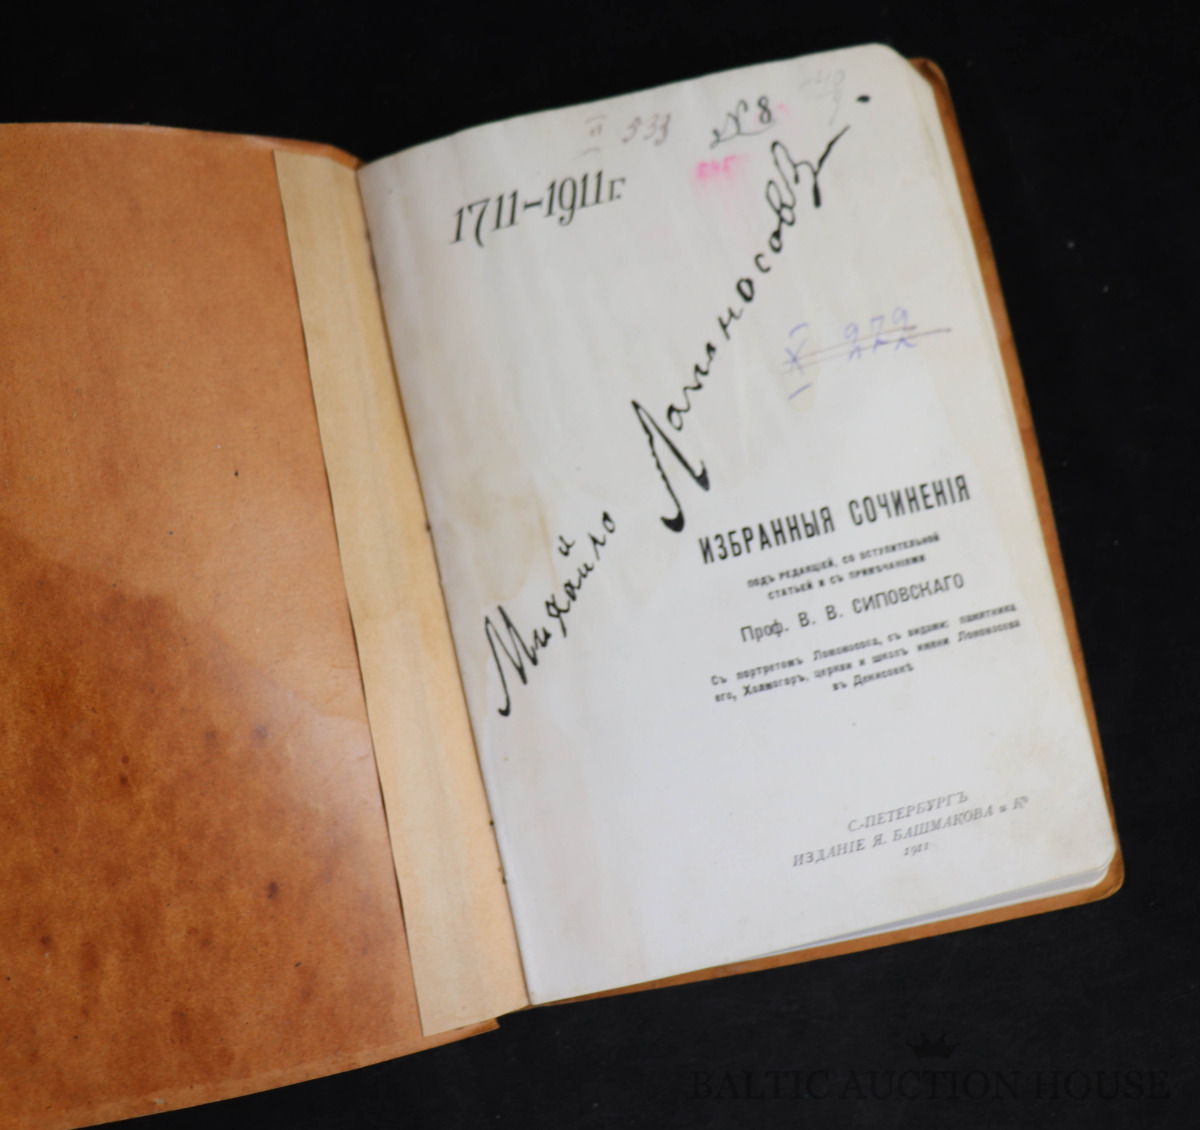 533 № 8
1711–1911г.
Михайло Ломоносовъ.
979
ИЗБРАННЫЯ СОЧИНЕНІЯ
ПОДЪ РЕДАКЦІЕЙ, СО ВСТУПИТЕЛЬНОЙ
СТАТЬЕЙ И СЪ ПРИМѢЧАНІЯМИ
Проф. В. В. СИПОВСКАГО
Съ портретомъ Ломоносова, съ видами: памятника
его, Холмогоръ, церкви и школъ имени Ломоносова
въ Денисовкѣ
С.-ПЕТЕРБУРГЪ
ИЗДАНІЕ Я. БАШМАКОВА и Кº
1911
BALTIC AUCTION HOUSE